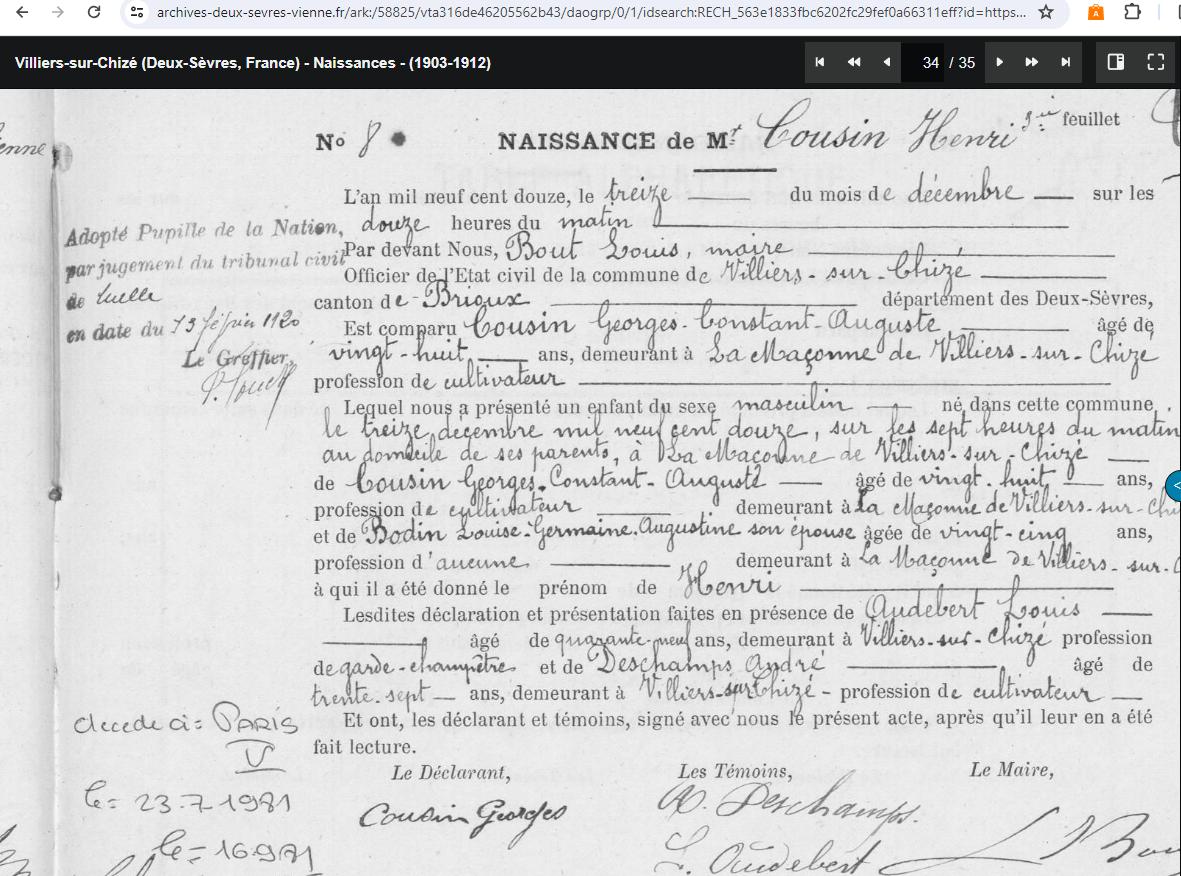 archives-deux-sevres-vienne.fr/ark:/58825/vta316de46205562b43/daogrp/0/1/idsearch:RECH_563e1833fbc6202fc29fef0a66311eff?id=https...
Villiers-sur-Chizé (Deux-Sèvres, France) - Naissances - (1903-1912)
34 / 35
enne
No 8 NAISSANCE de Mt Cousin Henri feuillet
L'an mil neuf cent douze, le treize du mois de décembre sur les
douze heures du matin
Par devant Nous, Bout Louis, maire
Officier de l'Etat civil de la commune de Villiers-sur-Chizé
canton de Brioux département des Deux-Sèvres,
Est comparu Cousin Georges-Constant-Auguste âgé de
vingt-huit ans, demeurant à La Maçonne de Villiers-sur-Chizé
profession de cultivateur
Lequel nous a présenté un enfant du sexe masculin né dans cette commune,
le treize décembre mil neuf cent douze, sur les sept heures du matin
au domicile de ses parents, à La Maçonne de Villiers-sur-Chizé
de Cousin Georges-Constant-Auguste âgé de vingt-huit ans,
profession de cultivateur demeurant à La Maçonne de Villiers-sur-Chi
et de Bodin Louise-Germaine-Augustine son épouse âgée de vingt-cinq ans,
profession d'aucune demeurant à La Maçonne de Villiers-sur-C
à qui il a été donné le prénom de Henri
Lesdites déclaration et présentation faites en présence de Audebert Louis
âgé de quarante-neuf ans, demeurant à Villiers-sur-Chizé profession
de garde-champêtre et de Deschamps André âgé de
trente-sept ans, demeurant à Villiers-sur-Chizé - profession de cultivateur
Et ont, les déclarant et témoins, signé avec nous le présent acte, après qu'il leur en a été
fait lecture.
Le Déclarant, Les Témoins, Le Maire,
Cousin Georges A. Deschamps.
L. Audebert L Bou
Adopté Pupille de la Nation,
par jugement du tribunal civil
de
en date du
Le Greffier,
decede a: PARIS
V
le= 23.7.1981